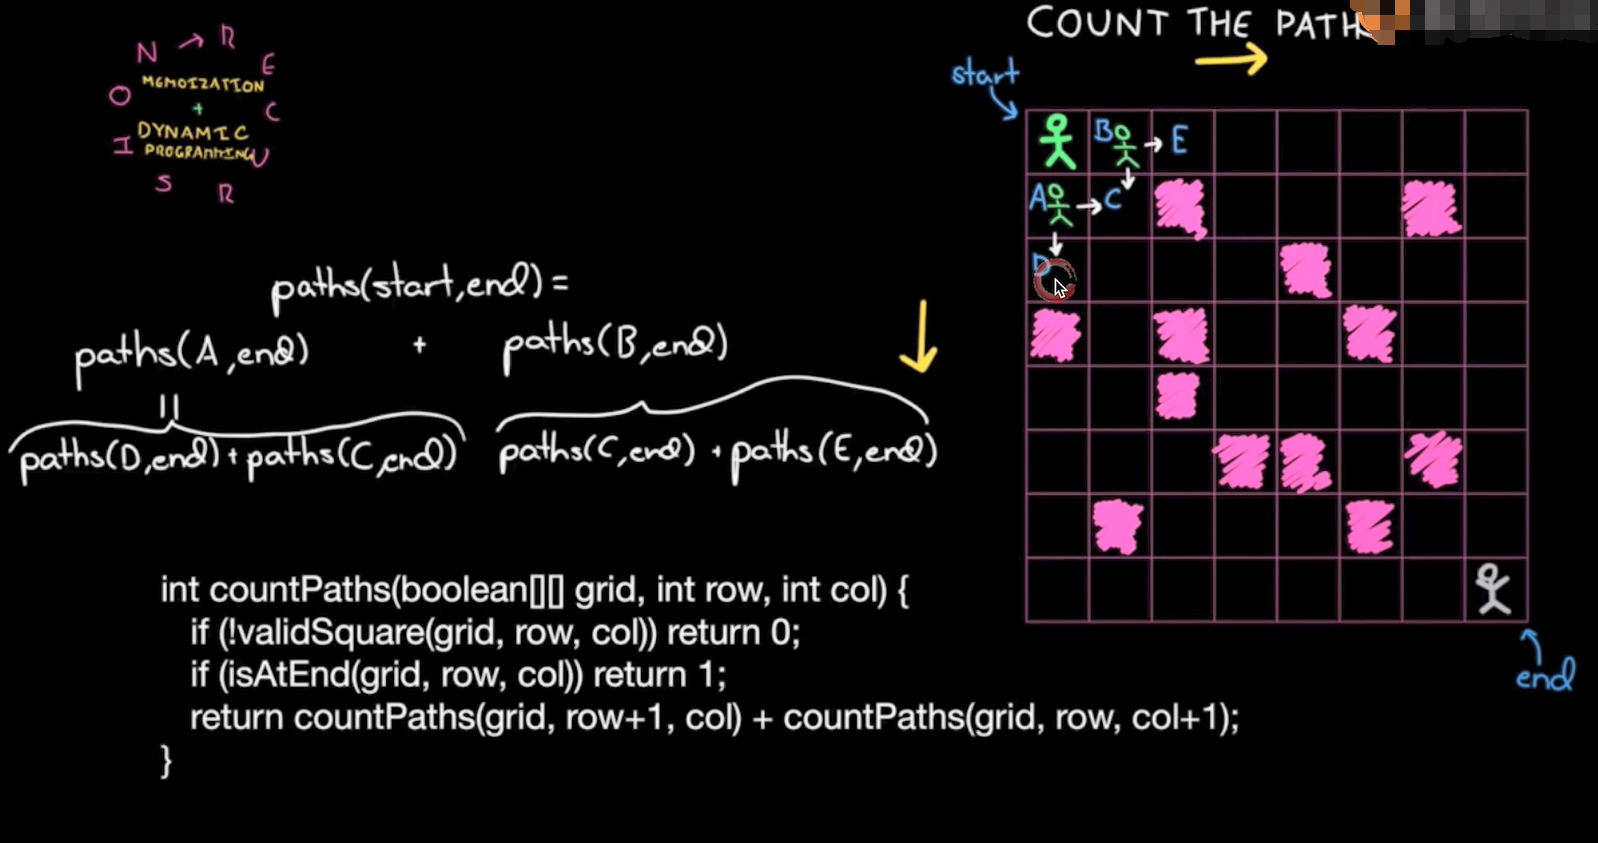 COUNT THE PATH
N → R E C U R S I O
MEMOIZATION
+
DYNAMIC
PROGRAMMING
start
B → E
A → C
D
paths(start,end) =
paths(A,end) + paths(B,end)
||
paths(D,end) + paths(C,end) paths(C,end) + paths(E,end)
int countPaths(boolean[][] grid, int row, int col) {
if (!validSquare(grid, row, col)) return 0;
if (isAtEnd(grid, row, col)) return 1;
return countPaths(grid, row+1, col) + countPaths(grid, row, col+1);
}
end